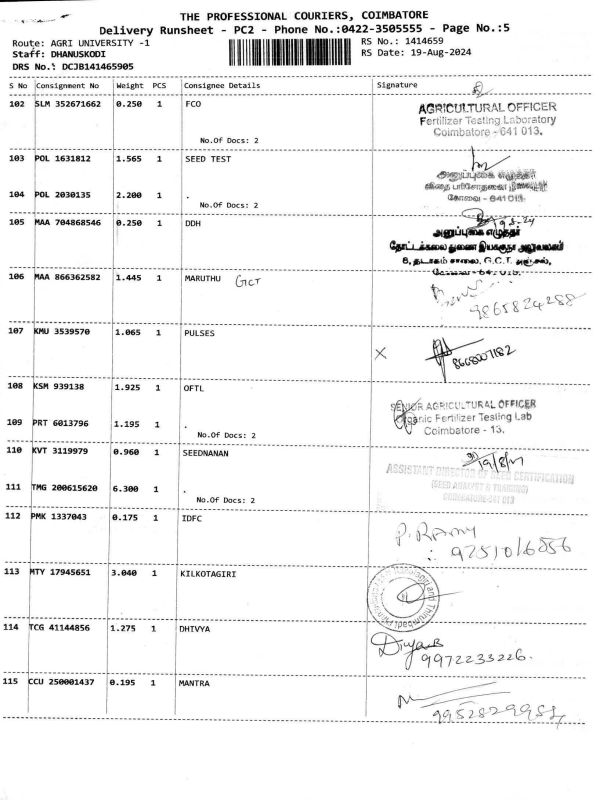 THE PROFESSIONAL COURIERS, COIMBATORE
Delivery Runsheet - PC2 - Phone No.:0422-3505555 - Page No.:5
Route: AGRI UNIVERSITY -1
RS No.: 1414659
Staff: DHANUSKODI
RS Date: 19-Aug-2024
DRS No.: DCJB141465905
S No Consignment No Weight PCS Consignee Details Signature
102 SLM 352671662 0.250 1 FCO
AGRICULTURAL OFFICER
Fertilizer Testing Laboratory
Coimbatore - 641 013.
No.Of Docs: 2
103 POL 1631812 1.565 1 SEED TEST
அனுப்புகை எழுத்தர்
விதை பரிசோதனை
கோவை - 641 013.
104 POL 2030135 2.200 1 .
No.Of Docs: 2
105 MAA 704868546 0.250 1 DDH
19-8-24
அனுப்புகை எழுத்தர்
தோட்டக்கலை துணை இயக்குநர் அலுவலகம்
8, தடாகம் சாலை, G.C.T. அஞ்சல்,
கோவை - 641 013.
106 MAA 866362582 1.445 1 MARUTHU GCT
9865824288
107 KMU 3539570 1.065 1 PULSES
X 8668007182
108 KSM 939138 1.925 1 OFTL
SENIOR AGRICULTURAL OFFICER
Organic Fertilizer Testing Lab
Coimbatore - 13.
109 PRT 6013796 1.195 1 .
No.Of Docs: 2
110 KVT 3119979 0.960 1 SEEDNANAN
19/8/24
ASSISTANT DIRECTOR OF SEED CERTIFICATION
(SEED ANALYST & TRAINING)
COIMBATORE-641 013
111 TMG 200615620 6.300 1 .
No.Of Docs: 2
112 PMK 1337043 0.175 1 IDFC
P. Ramy
113 MTY 17945651 3.040 1 KILKOTAGIRI
114 TCG 41144856 1.275 1 DHIVYA
Divya.B
9972233226.
115 CCU 250001437 0.195 1 MANTRA